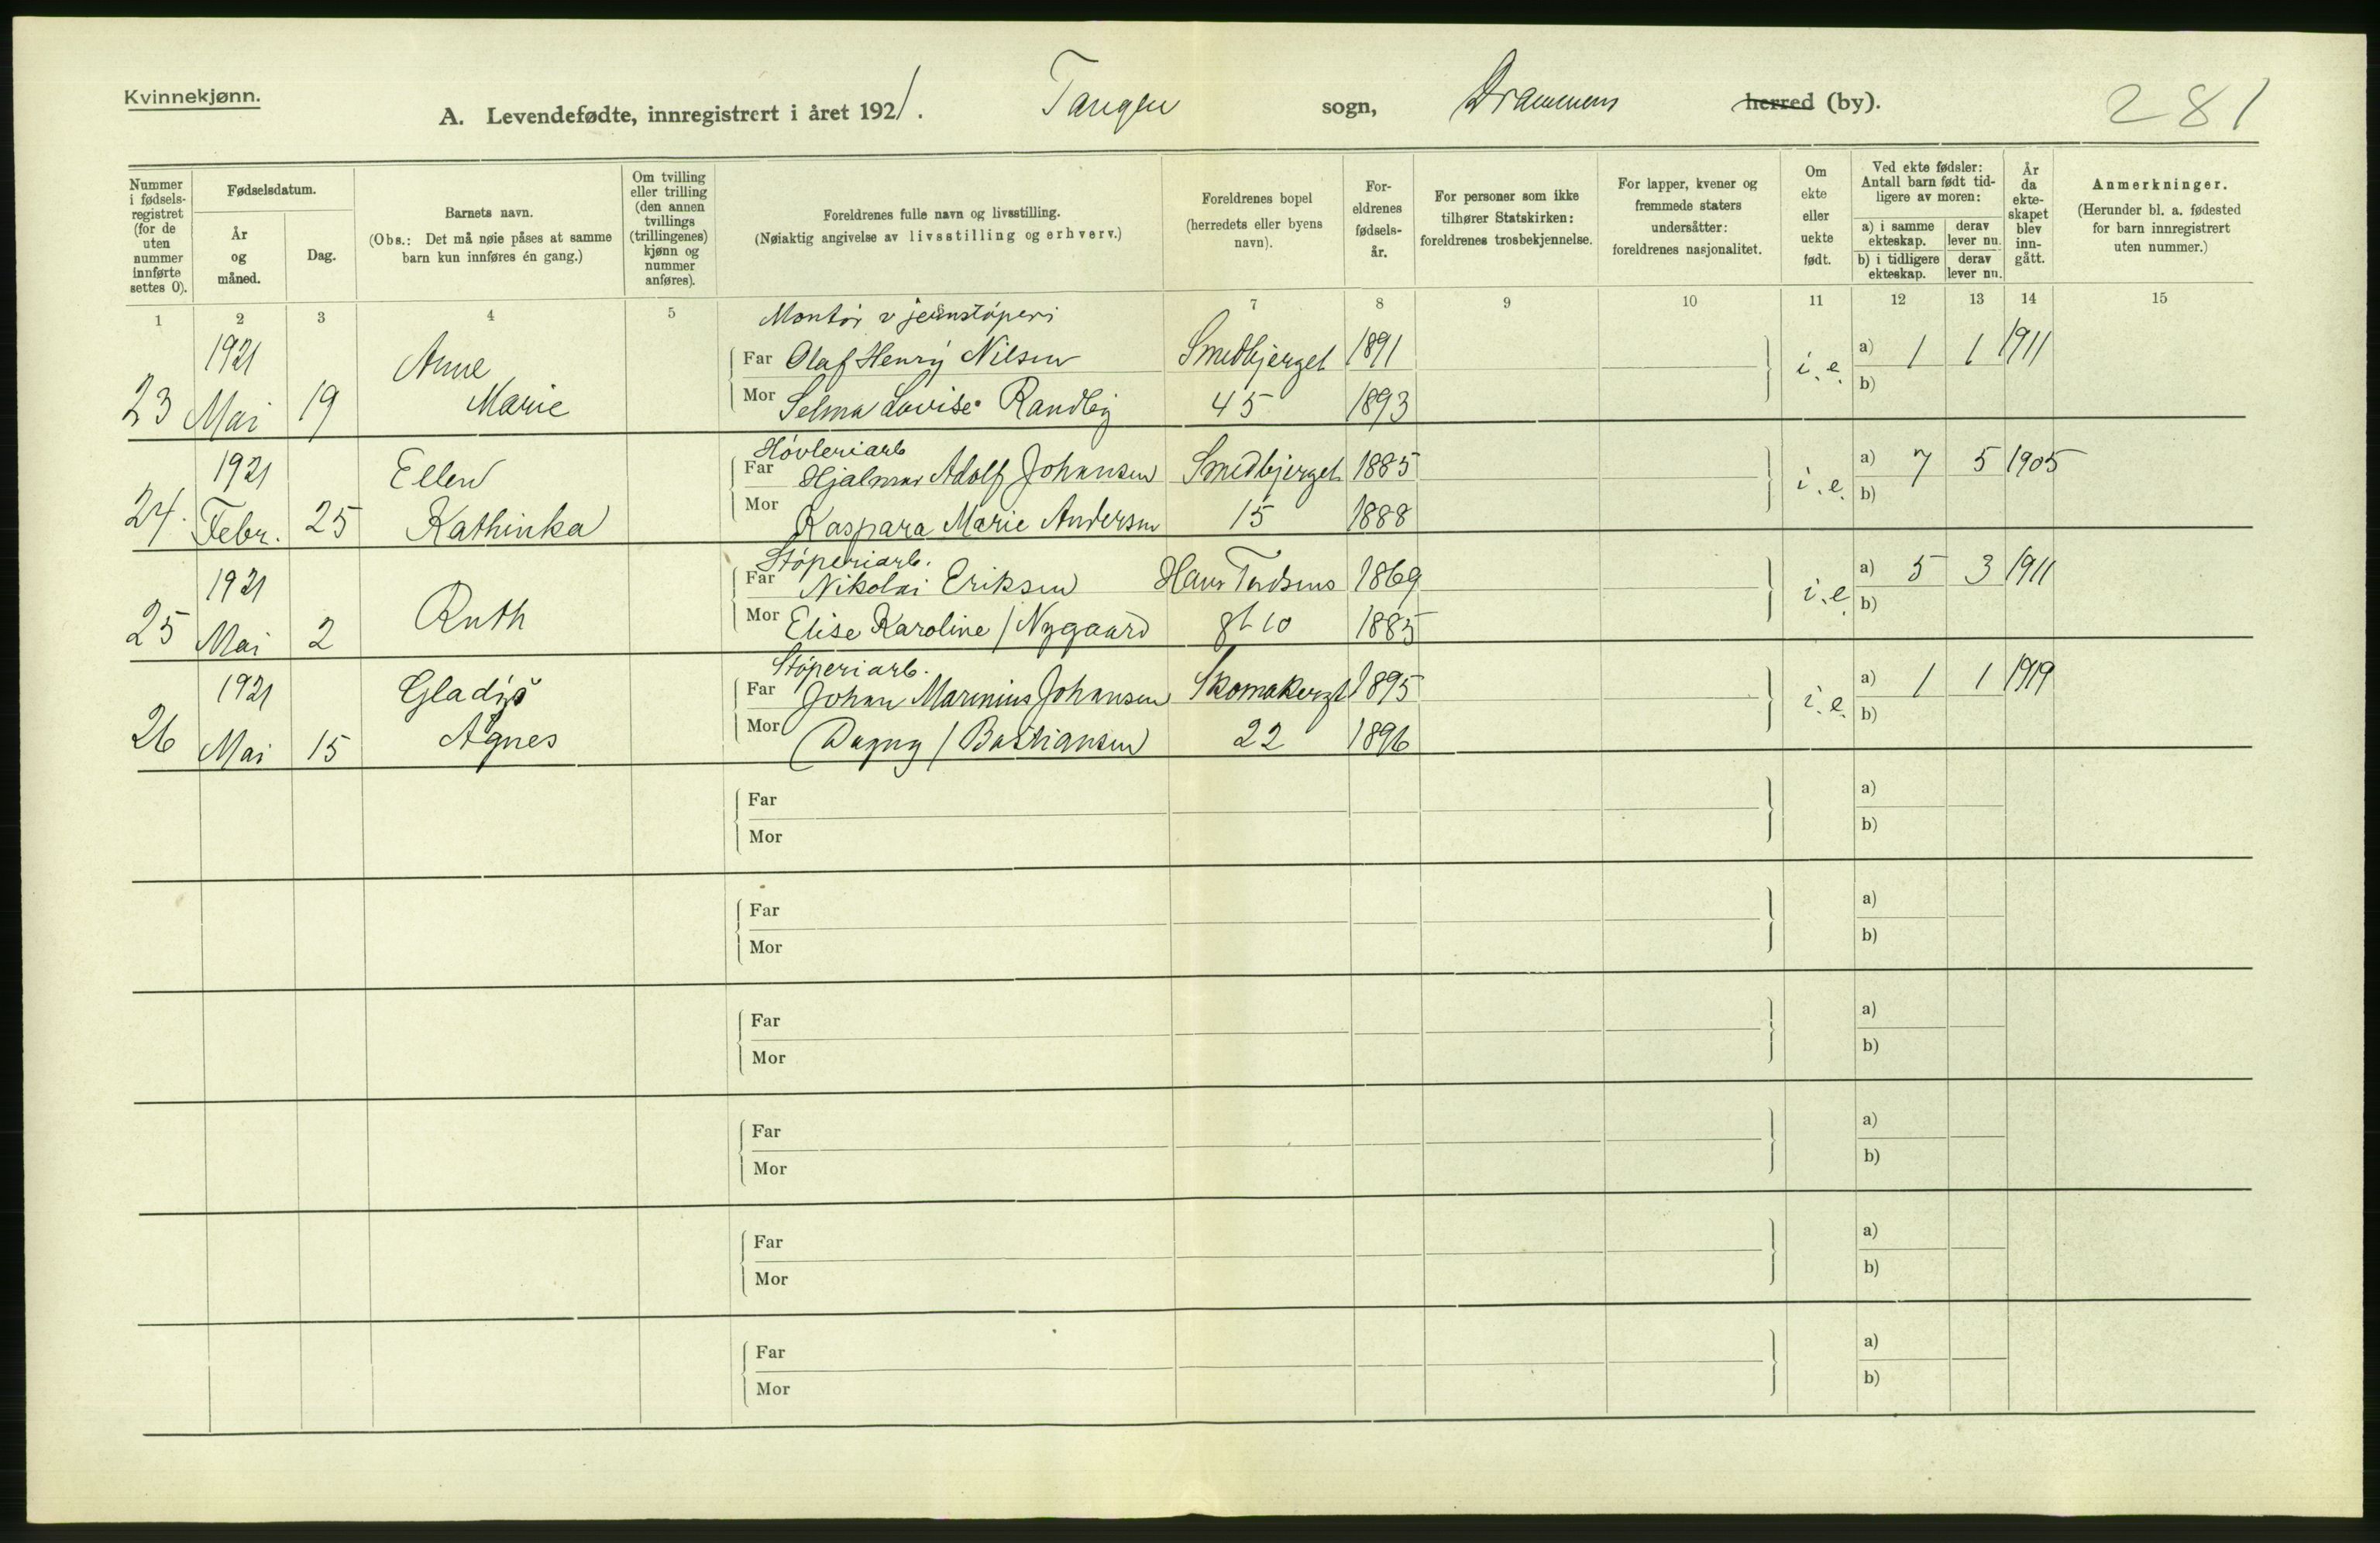 Kvinnekjønn.
A. Levendefødte, innregistrert i året 1921. Tangen sogn, Drammens herred (by). 281
Nummer i fødsels-registret (for de uten nummer innførte settes 0).
Fødselsdatum.
År og måned.
Dag.
Barnets navn.
(Obs.: Det må nøie påses at samme barn kun innføres én gang.)
Om tvilling eller trilling (den annen tvillings (trillingenes) kjønn og nummer anføres).
Foreldrenes fulle navn og livsstilling.
(Nøiaktig angivelse av livsstilling og erhverv.)
Foreldrenes bopel
(herredets eller byens navn).
For-eldrenes fødsels-år.
For personer som ikke tilhører Statskirken: foreldrenes trosbekjennelse.
For lapper, kvener og fremmede staters undersåtter: foreldrenes nasjonalitet.
Om ekte eller uekte født.
Ved ekte fødsler: Antall barn født tid-ligere av moren:
a) i samme ekteskap.
derav lever nu.
b) i tidligere ekteskap.
derav lever nu.
År da ekte-skapet blev inn-gått.
Anmerkninger.
(Herunder bl. a. fødested for barn innregistrert uten nummer.)
1 2 3 4 5 7 8 9 10 11 12 13 14 15
Montör v jernstöperi
1921 Anne Far Olaf Henry Nilsen Smedbjerget 1891 i. e. a) 1 1 1911
23 Mai 19 Marie Mor Selma Lovise Randby 45 1893 b)
Hövleriarb
1921 Ellen Far Hjalmar Adolf Johansen Smedbjerget 1885 i. e. a) 7 5 1905
24. Febr. 25 Kathinka Mor Kaspara Marie Andersen 15 1888 b)
Stöperiarb.
1921 Far Nikolai Eriksen Hans 1869 i. e. a) 5 3 1911
25 Mai 2 Ruth Mor Elise Karoline / Nygaard gt 10 1885 b)
Stöperiarb.
1921 Gladys Far Johan Marinius Johansen Skomakergt 1895 i. e. a) 1 1 1919
26 Mai 15 Agnes Mor Dagny / Bastiansen 22 1896 b)
Far a)
Mor b)
Far a)
Mor b)
Far a)
Mor b)
Far a)
Mor b)
Far a)
Mor b)
Far a)
Mor b)